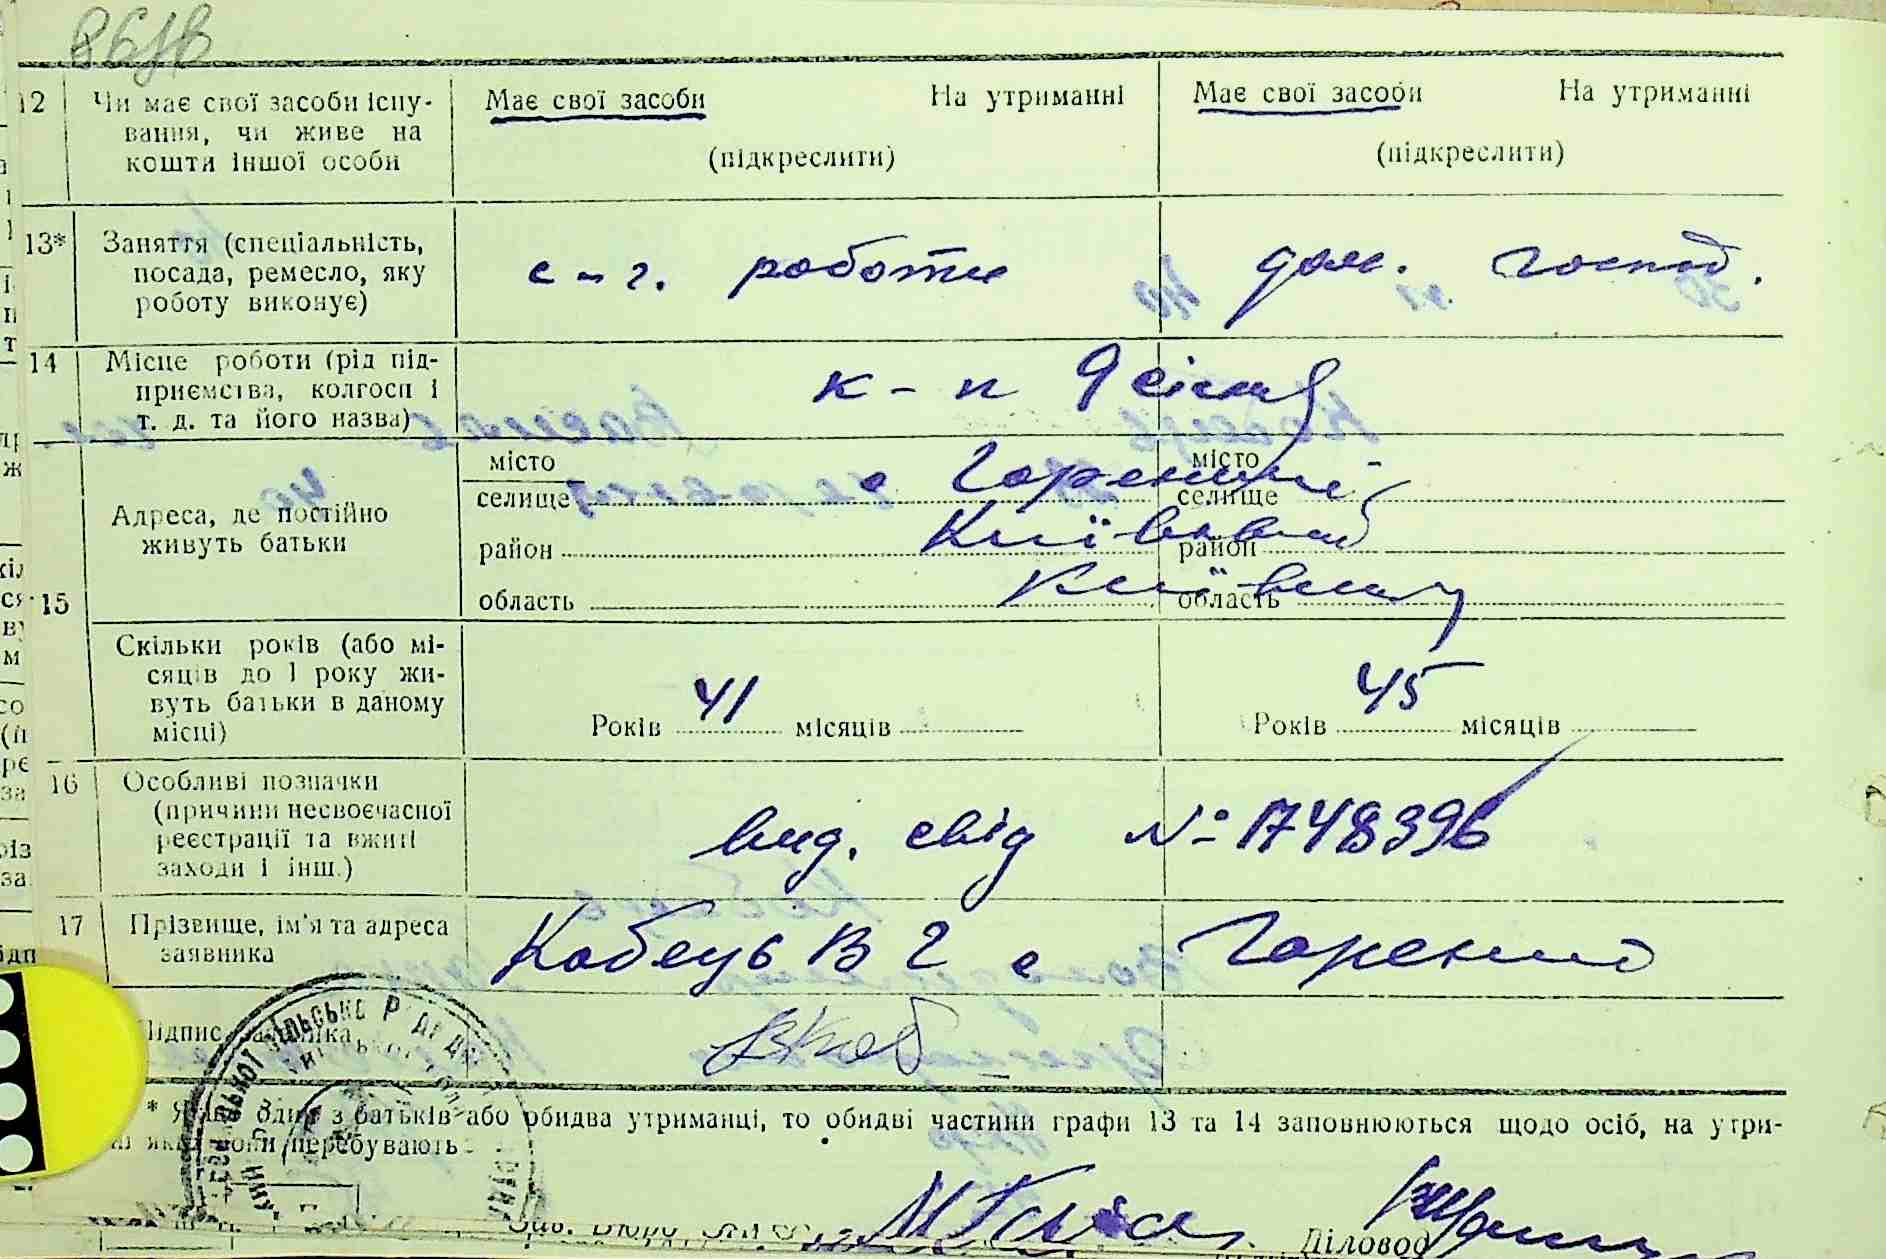 12 Чи має свої засоби існу-
вання, чи живе на
кошти іншої особи
Має свої засоби На утриманні
(підкреслити)
Має свої засоби На утриманні
(підкреслити)
13* Заняття (спеціальність,
посада, ремесло, яку
роботу виконує)
с-г. роботи
дом. господ.
14 Місце роботи (рід під-
приємства, колгосп і
т. д. та його назва)
к-п 9 січня
15 Адреса, де постійно
живуть батьки
місто
селище
район
область
с Гореничі
Київський
Київської
місто
селище
район
область
Скільки років (або мі-
сяців до 1 року жи-
вуть батьки в даному
місці)
Років 41 місяців
Років 45 місяців
16 Особливі позначки
(причини несвоєчасної
реєстрації та вжиті
заходи і інш.)
вид. свід № 1748396
17 Прізвище, ім'я та адреса
заявника
Кобець В Г с Гореничі
Підпис заявника
* Якщо один з батьків або обидва утриманці, то обидві частини графи 13 та 14 заповнюються щодо осіб, на утри-
перебувають
Зав. Бюро
Діловод